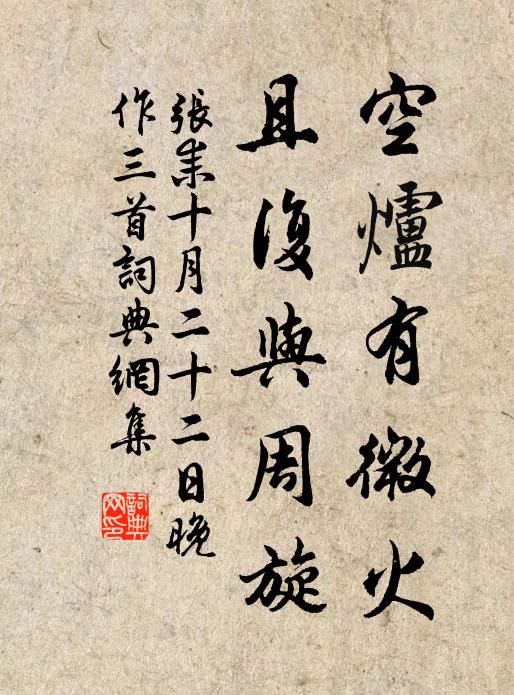 空爐有微火
且復與周旋
張耒十月二十二日晚
作三首詞典網集
詞典網印